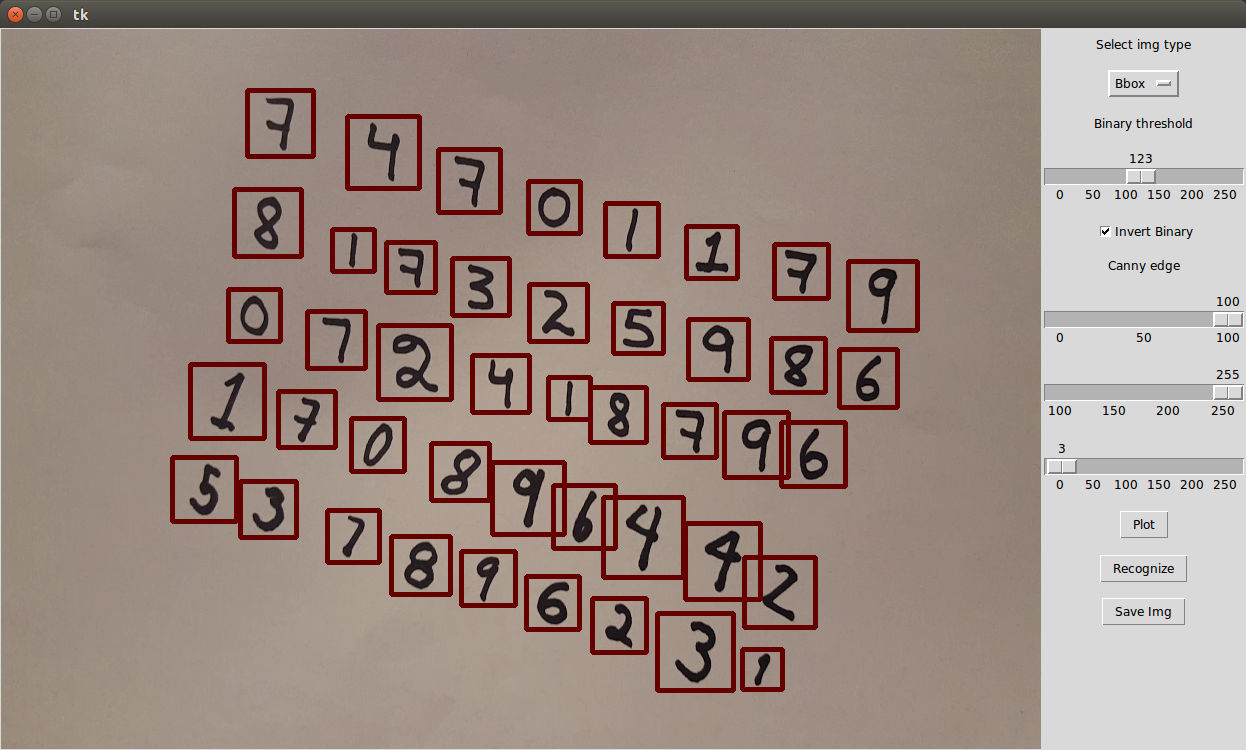 tk
7 4 7 0 1 1 7 9
8 1 7 3 2 5 9 8 6
0 7 2 4 1 8 7 9 6
1 7 0 8 9 6 4 4 2
5 3 7 8 9 6 2 3 1
Select img type
Bbox
Binary threshold
123
0 50 100 150 200 250
Invert Binary
Canny edge
100
0 50 100
255
100 150 200 250
3
0 50 100 150 200 250
Plot
Recognize
Save Img